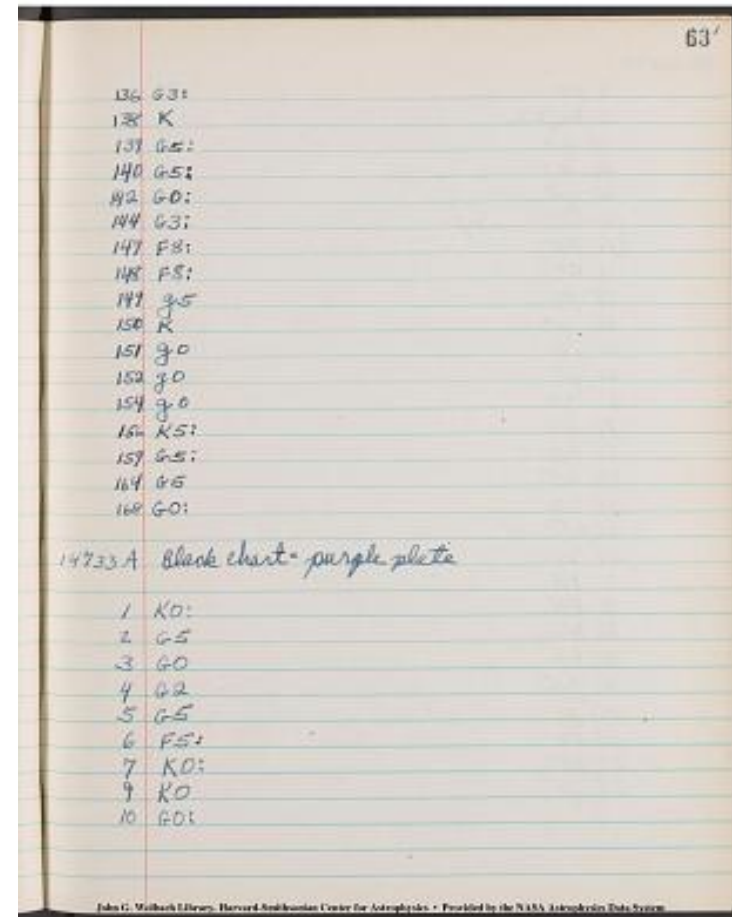 63
136 G3:
138 K
139 G5:
140 G5:
142 G0:
144 G3:
147 F8:
148 F8:
149 g5
150 K
151 g0
152 g0
154 g0
156 K5:
159 G5:
164 G5
168 G0:
14733 A Black chart - purple plate
1 K0:
2 G5
3 G0
4 G2
5 G5
6 F5:
7 K0:
9 K0
10 G0:
John G. Wolbach Library, Harvard-Smithsonian Center for Astrophysics • Provided by the NASA Astrophysics Data System